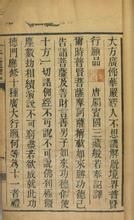 大方廣佛華嚴經入不思議解脫境界普賢
行願品　唐罽賓國三藏般若奉詔譯
爾時普賢菩薩摩訶薩稱歎如來勝功德已
告諸菩薩及善財言善男子如來功德假使
十方一切諸佛經不可說不可說佛剎極微
塵數劫相續演說不可窮盡若欲成就此功
德門應修十種廣大行願何等為十一者禮